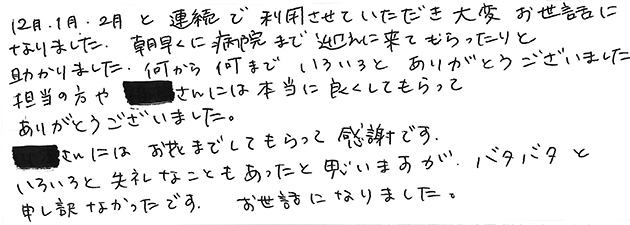 12月.1月.2月 と 連続で 利用させていただき 大変 お世話に
なりました. 朝早くに病院まで 迎えに来てもらったりと
助かりました. 何から何まで いろいろと ありがとうございました
担当の方や さんには本当に良くしてもらって
ありがとうございました。
さんには お世話までしてもらって 感謝です.
いろいろと 失礼なこともあったと思いますが. バタバタと
申し訳なかったです. お世話になりました。